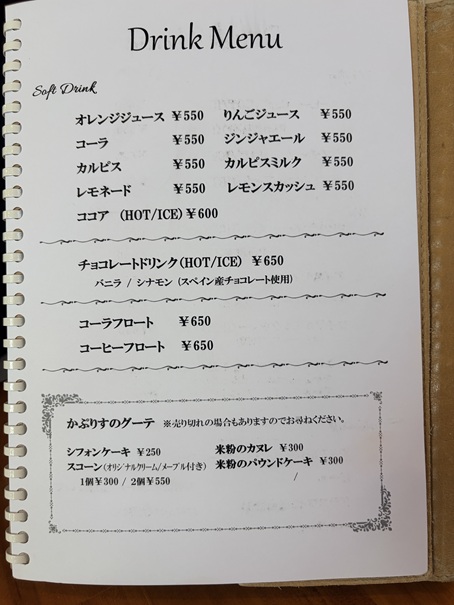 Drink Menu
Soft Drink
オレンジジュース ￥550 りんごジュース ￥550
コーラ ￥550 ジンジャエール ￥550
カルピス ￥550 カルピスミルク ￥550
レモネード ￥550 レモンスカッシュ ￥550
ココア (HOT/ICE) ￥600
チョコレートドリンク(HOT/ICE) ￥650
バニラ / シナモン (スペイン産チョコレート使用)
コーラフロート ￥650
コーヒーフロート ￥650
かぷりすのグーテ ※売り切れの場合もありますのでお尋ねください。
シフォンケーキ ￥250 米粉のカヌレ ￥300
スコーン(オリジナルクリーム/メープル付き) 米粉のパウンドケーキ ￥300
1個￥300 / 2個￥550 /